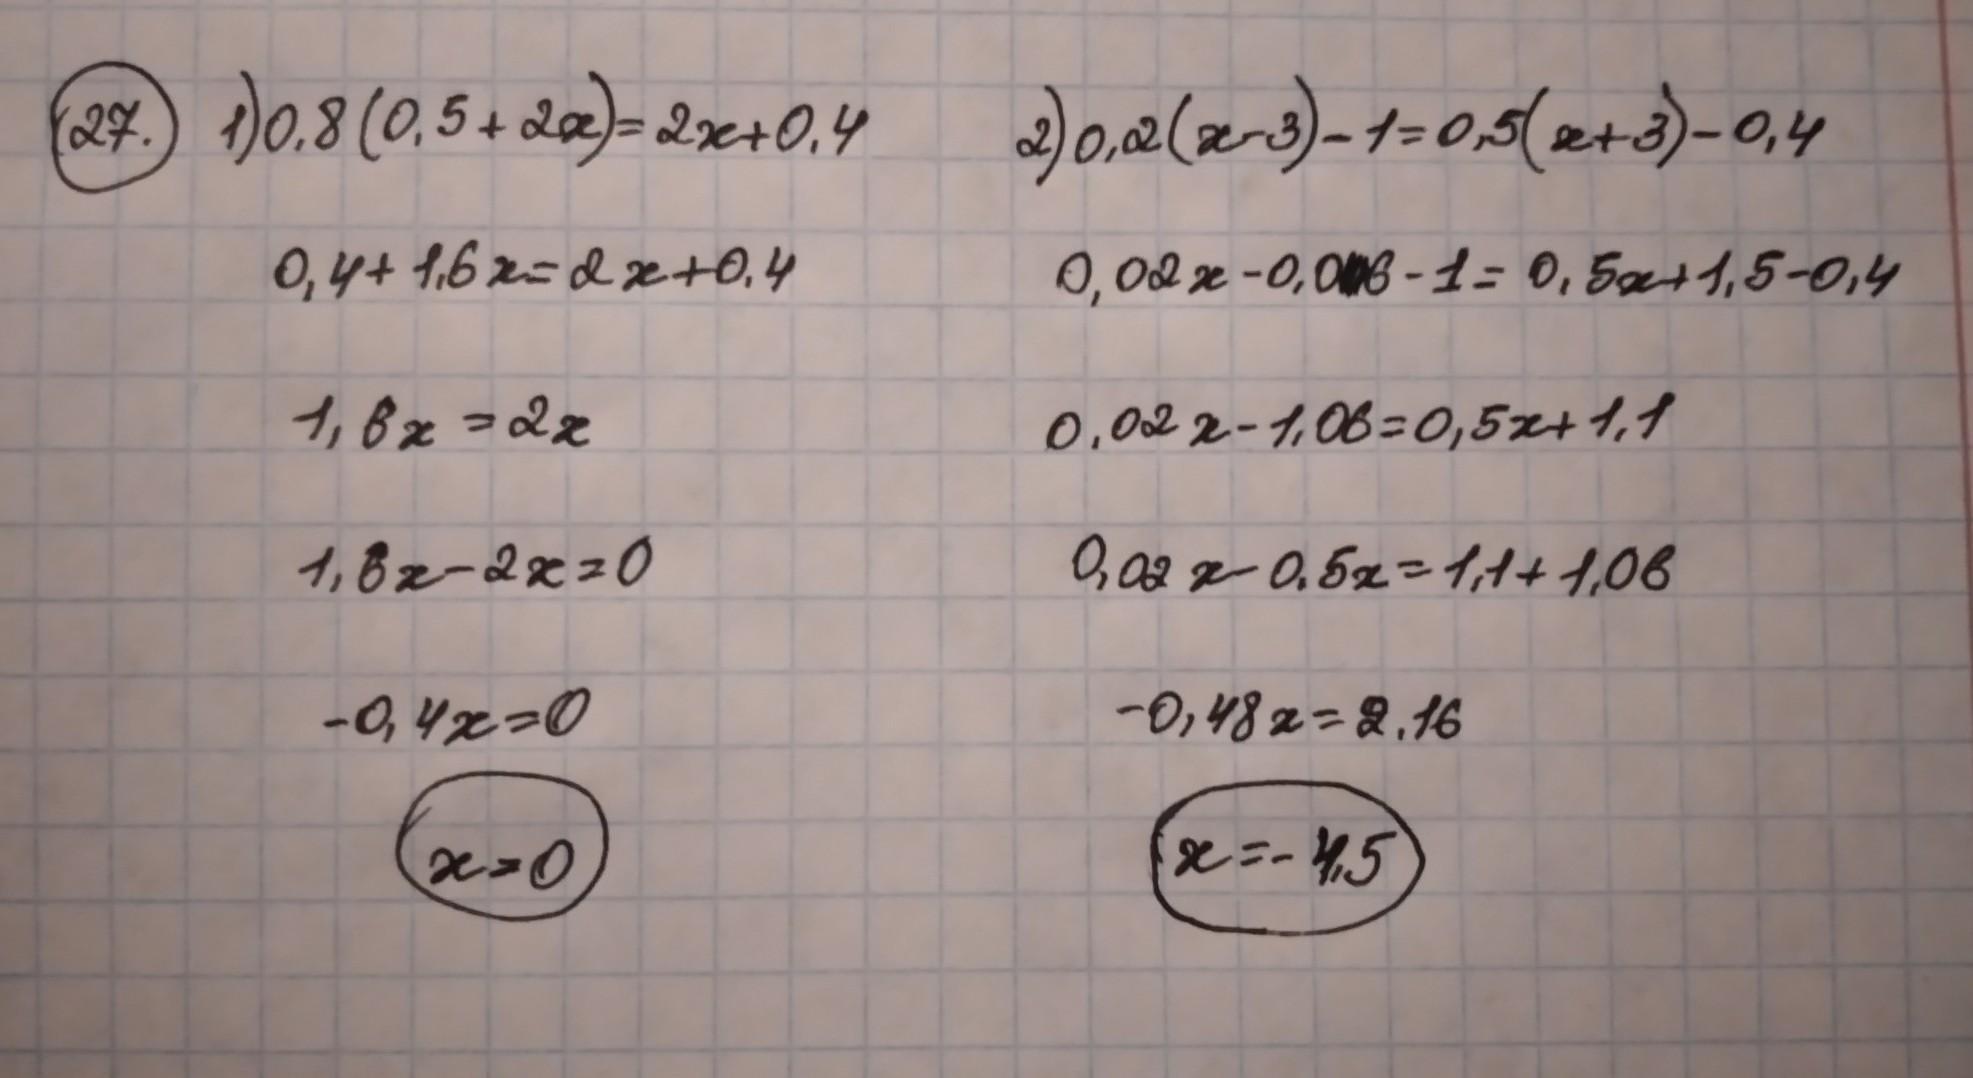 27. 1) 0,8(0,5+2x)=2x+0,4
0,4+1,6x=2x+0,4
1,6x=2x
1,6x-2x=0
-0,4x=0
x=0
2) 0,2(x-3)-1=0,5(x+3)-0,4
0,02x-0,06-1=0,5x+1,5-0,4
0,02x-1,06=0,5x+1,1
0,02x-0,5x=1,1+1,06
-0,48x=2.16
x=-4,5